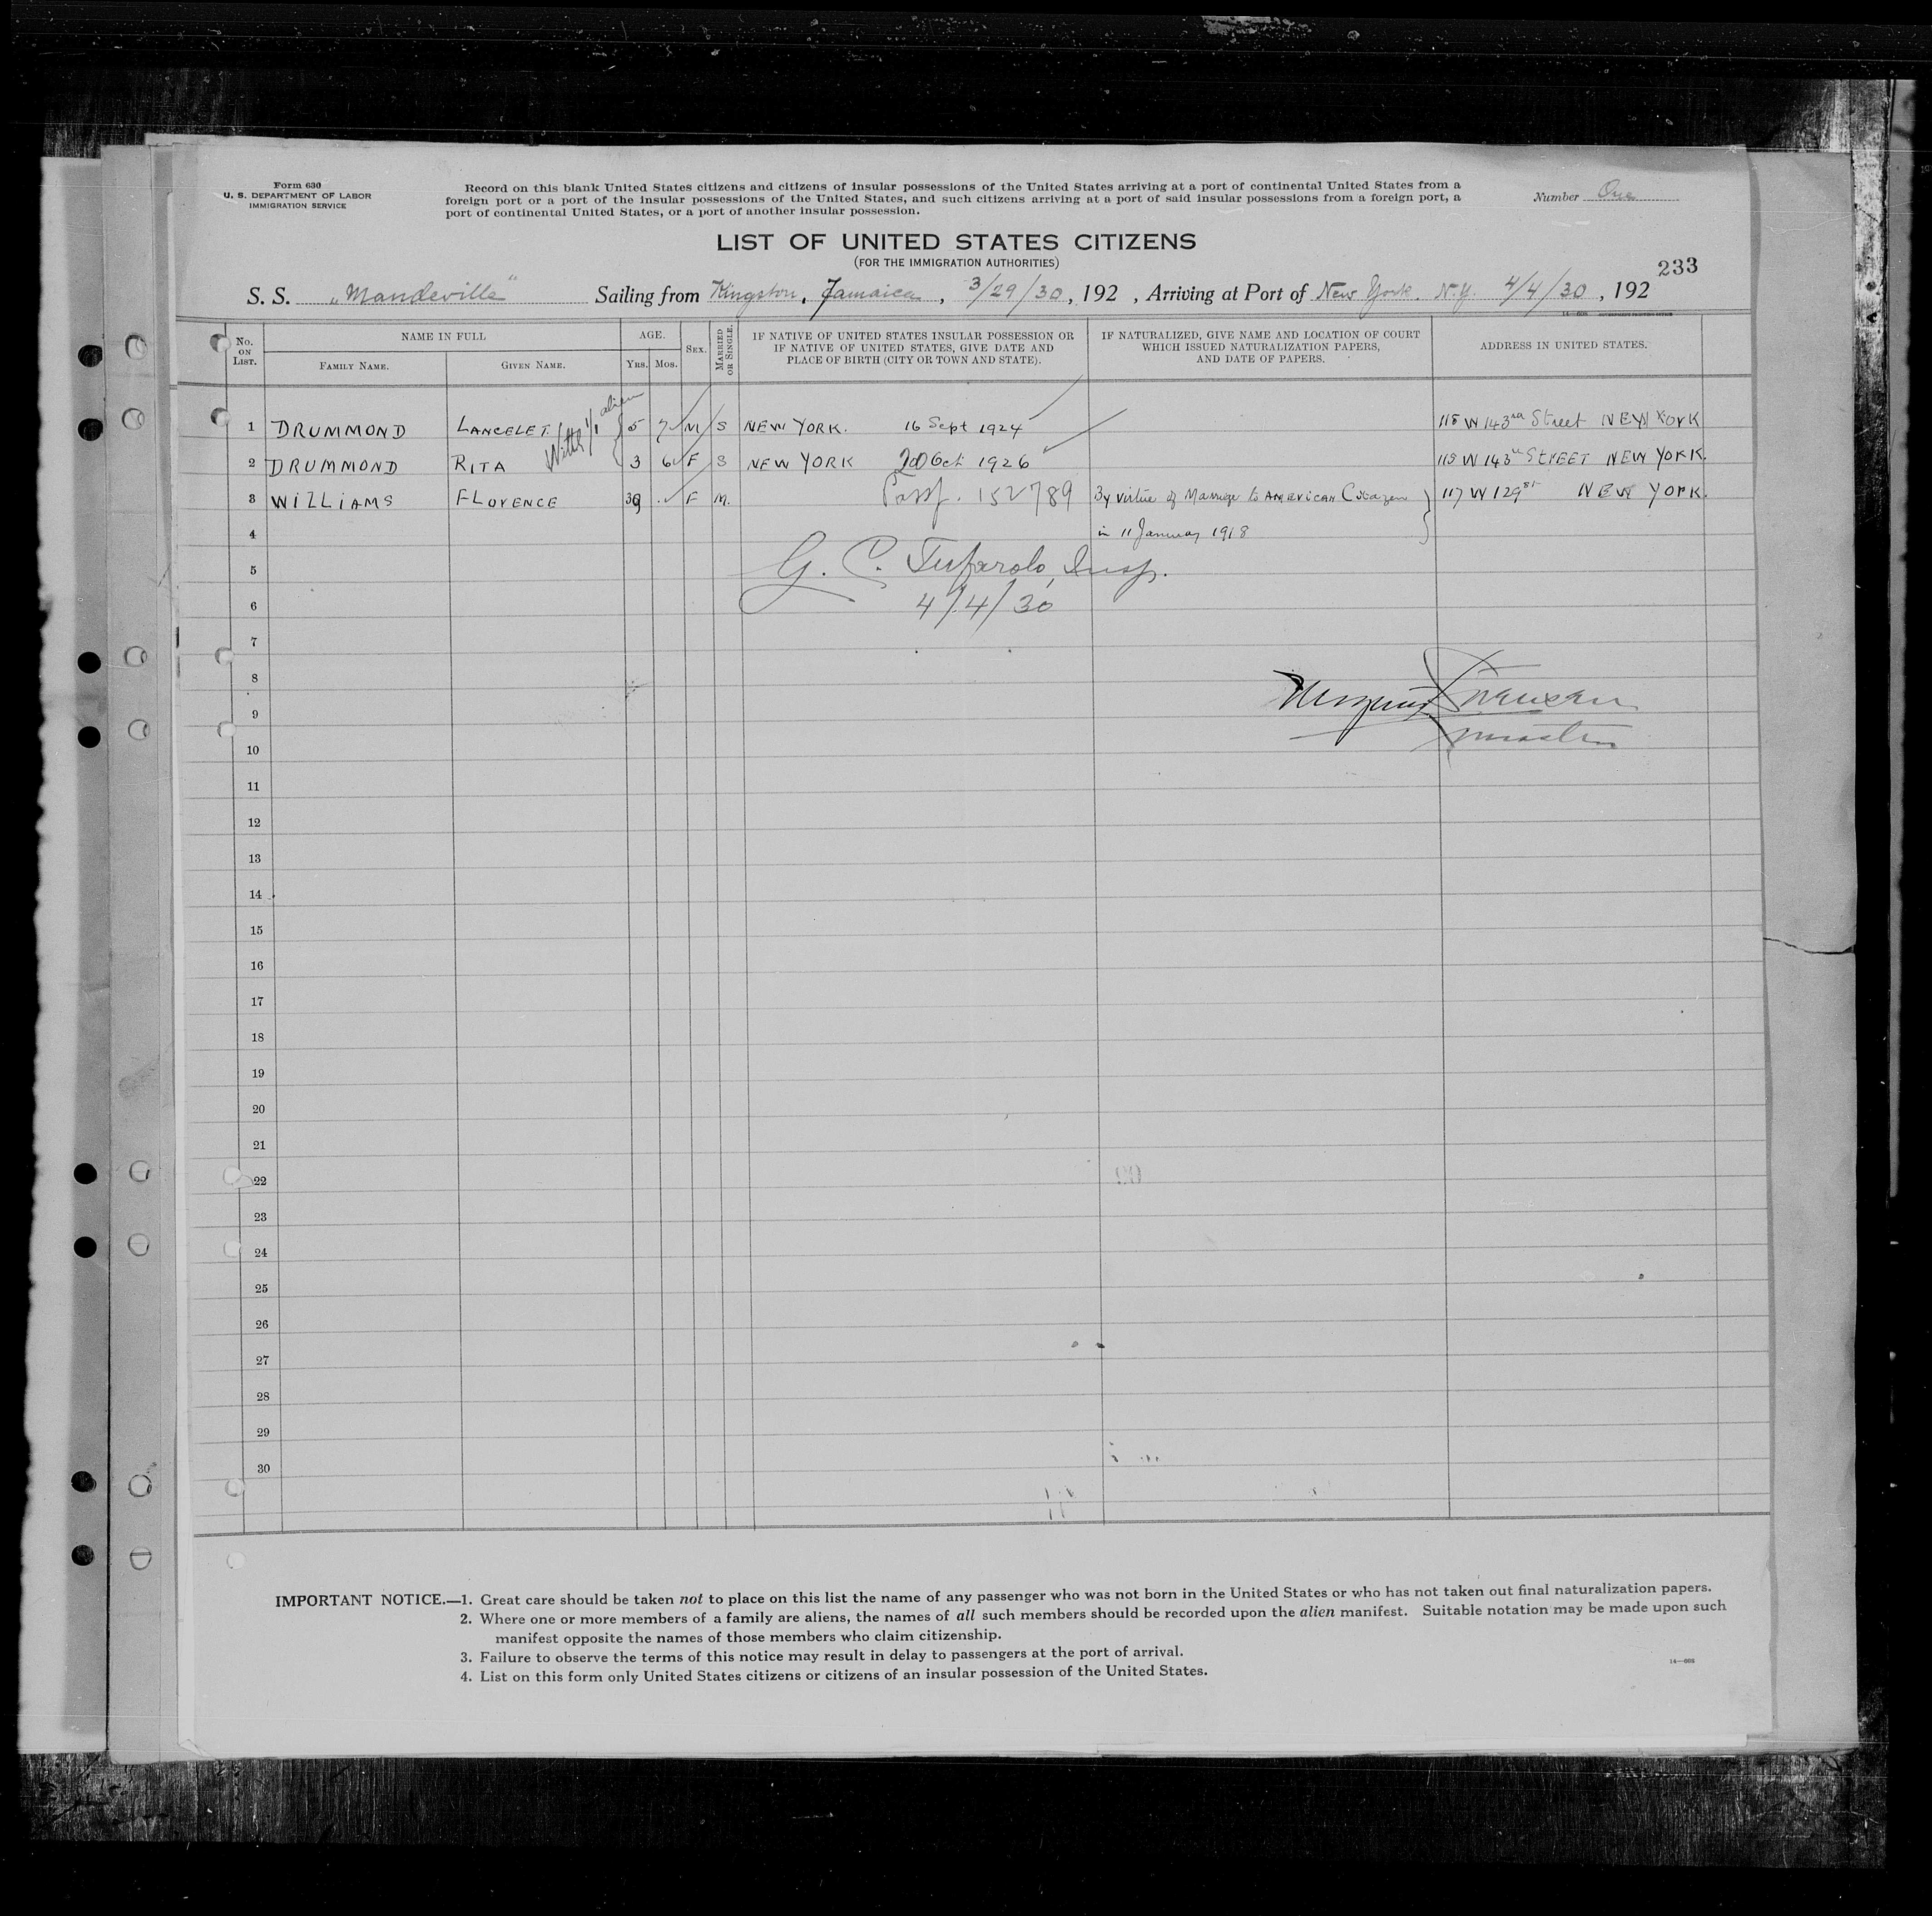 Form 630
U. S. DEPARTMENT OF LABOR
IMMIGRATION SERVICE
Record on this blank United States citizens and citizens of insular possessions of the United States arriving at a port of continental United States from a
foreign port or a port of the insular possessions of the United States, and such citizens arriving at a port of said insular possessions from a foreign port, a
port of continental United States, or a port of another insular possession.
Number One
LIST OF UNITED STATES CITIZENS
(FOR THE IMMIGRATION AUTHORITIES)
233
S. S. „Mandeville" Sailing from Kingston, Jamaica, 3/29/30, 192 , Arriving at Port of New York. N.Y. 4/4/30, 192
No. ON LIST. NAME IN FULL FAMILY NAME. GIVEN NAME. AGE. YRS. MOS. SEX. MARRIED OR SINGLE. IF NATIVE OF UNITED STATES INSULAR POSSESSION OR IF NATIVE OF UNITED STATES, GIVE DATE AND PLACE OF BIRTH (CITY OR TOWN AND STATE). IF NATURALIZED, GIVE NAME AND LOCATION OF COURT WHICH ISSUED NATURALIZATION PAPERS, AND DATE OF PAPERS. ADDRESS IN UNITED STATES.
With 1/1 alien
1 DRUMMOND LANCELET 5 7 M S NEW YORK. 16 Sept 1924 115 W 143rd Street NEW YORK
2 DRUMMOND RITA 3 6 F S NEW YORK 20 Oct 1926 115 W 143rd STREET NEW YORK.
3 WILLIAMS FLORENCE 39 F M. Passp. 152789 By virtue of Marriage to AMERICAN Citizen 117 W 129st NEW YORK.
4 in 11 January 1918
5 G. C. Tufarolo, Insp.
6 4/4/30
7
8
9
10
11
12
13
14
15
16
17
18
19
20
21
22
23
24
25
26
27
28
29
30
IMPORTANT NOTICE.—1. Great care should be taken not to place on this list the name of any passenger who was not born in the United States or who has not taken out final naturalization papers.
2. Where one or more members of a family are aliens, the names of all such members should be recorded upon the alien manifest. Suitable notation may be made upon such
manifest opposite the names of those members who claim citizenship.
3. Failure to observe the terms of this notice may result in delay to passengers at the port of arrival.
4. List on this form only United States citizens or citizens of an insular possession of the United States.